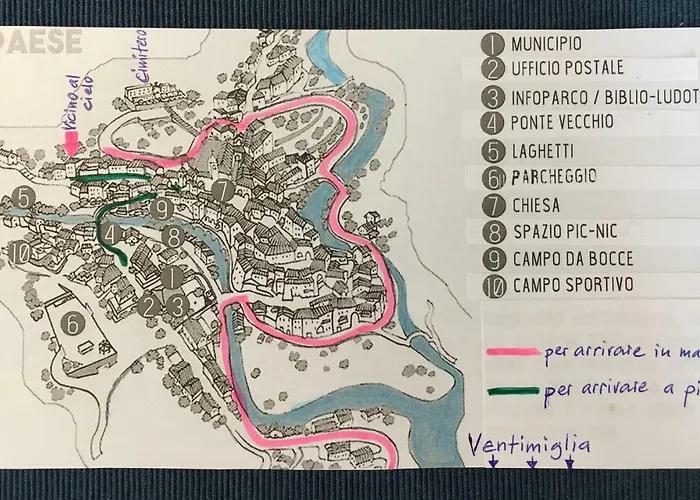 PAESE
Cimitero
Vicino al
cielo
1 MUNICIPIO
2 UFFICIO POSTALE
3 INFOPARCO / BIBLIO-LUDOT
4 PONTE VECCHIO
5 LAGHETTI
6 PARCHEGGIO
7 CHIESA
8 SPAZIO PIC-NIC
9 CAMPO DA BOCCE
10 CAMPO SPORTIVO
5
7
9
4
8
10
1
2
3
6
per arrivare in ma
per arrivare a pi
Ventimiglia